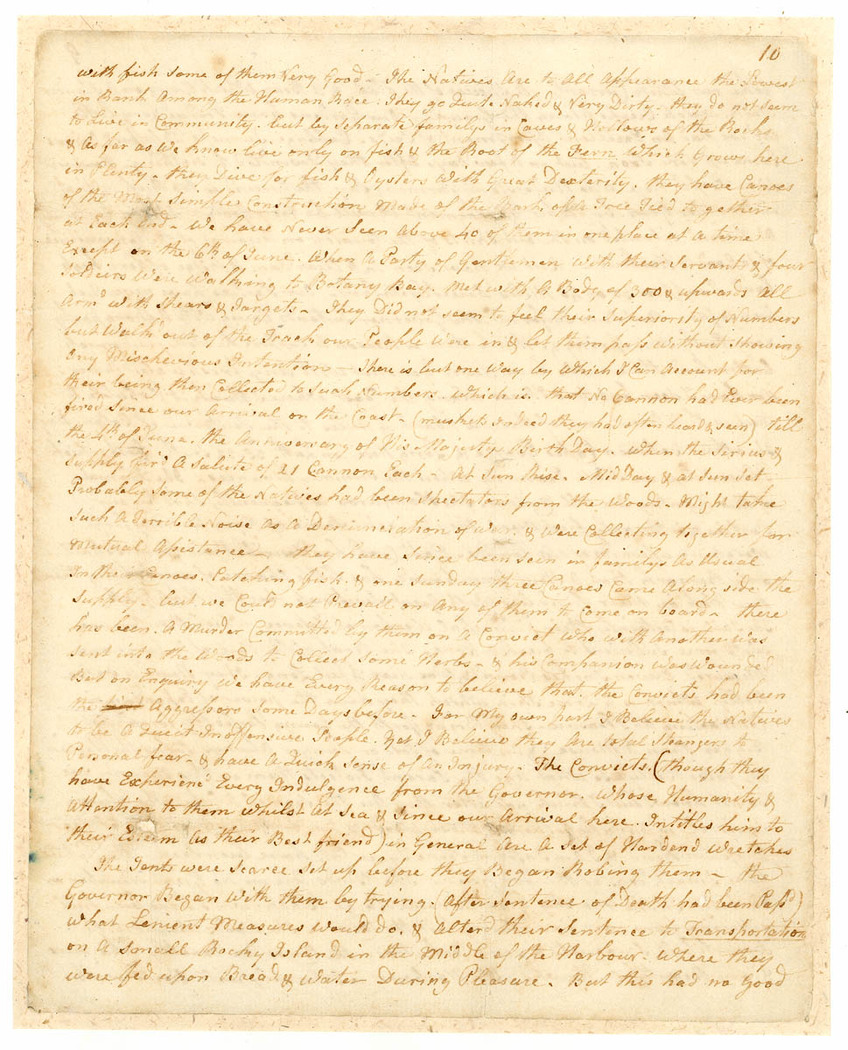 10
with fish some of them Very Good – The Natives Are to All Appearance the Lowest
in Rank Among the Human Race. They go Quite Naked & Very Dirty. they do not seem
to Live in Community. but by Separate familys in Caves & Hollows of the Rocks
& As far as we know live only on fish & the Root of the Fern Which Grows here
in Plenty – they Dive for fish & Oysters With Great Dexterity. they have Canoes
of the Most Simple Construction Made of the Bark of A Tree Tied together
at Each End – We have Never Seen Above 40 of them in one place at A time
Except on the 6th of June. When A Party of Gentlemen with their Servants & four
Soldiers Were Walking to Botany Bay. Met with A Body of 300 & upwards All
Armd with Spears & Targets – They Did not seem to feel their Superiority of Numbers
but Walkd out of the Track our People Were in & let them pass without Showing
Any Mischevious Intention – There is but one Way by Which I Can Account for
their being then Collected to Such Numbers. Which is. that No Cannon had Ever been
fired Since our Arrival on the Coast – (muskets indeed they had often heard & seen) till
the 4th of June. the Anniversary of His Majestys Birth Day. When the Sirius &
Supply fird A Salute of 21 Cannon Each – At Sun Rise. Mid Day & at Sun Set –
Probably Some of the Natives had been Spectators from the Woods – Might take
Such A Terrible Noise As A Denunciation of War. & Were Collecting together for
Mutual Assistance – they have Since been Seen in familys As Usual
In their Canoes. Catching fish. & one Sunday three Canoes Came Along side the
Supply – but we Could not Prevail on Any of them to Come on board – there
has been. A Murder Committed by them on A Convict Who with Another Was
Sent into the Woods to Collect Some Herbs – & his Companion was Wounded
But on Enquiry we have Every Reason to believe that. the Convicts had been
the Aggressors Some Days before – For My own part I Believe the Natives
to be A Quiet Inoffensive People. Yet I Believe they Are total Strangers to
Personal fear – & have A Quick Sense of An Injury – The Convicts. (though they
have Experiencd Every Indulgence from the Governor. Whose Humanity &
Attention to them Whilst At Sea & Since our Arrival here. Intitles him to
their Esteem As their Best friend) in General Are A Set of Hardend Wretches
The Tents were scarce Set up before they Began Robing them – the
Governor Began With them by trying. (After Sentence of Death had been Passd)
What Lenient Measures Would do. & Alterd their Sentence to Transportation
on A Small Rocky Island in the Middle of the Harbour. Where they
were fed upon Bread & Water During Pleasure. But this had no Good